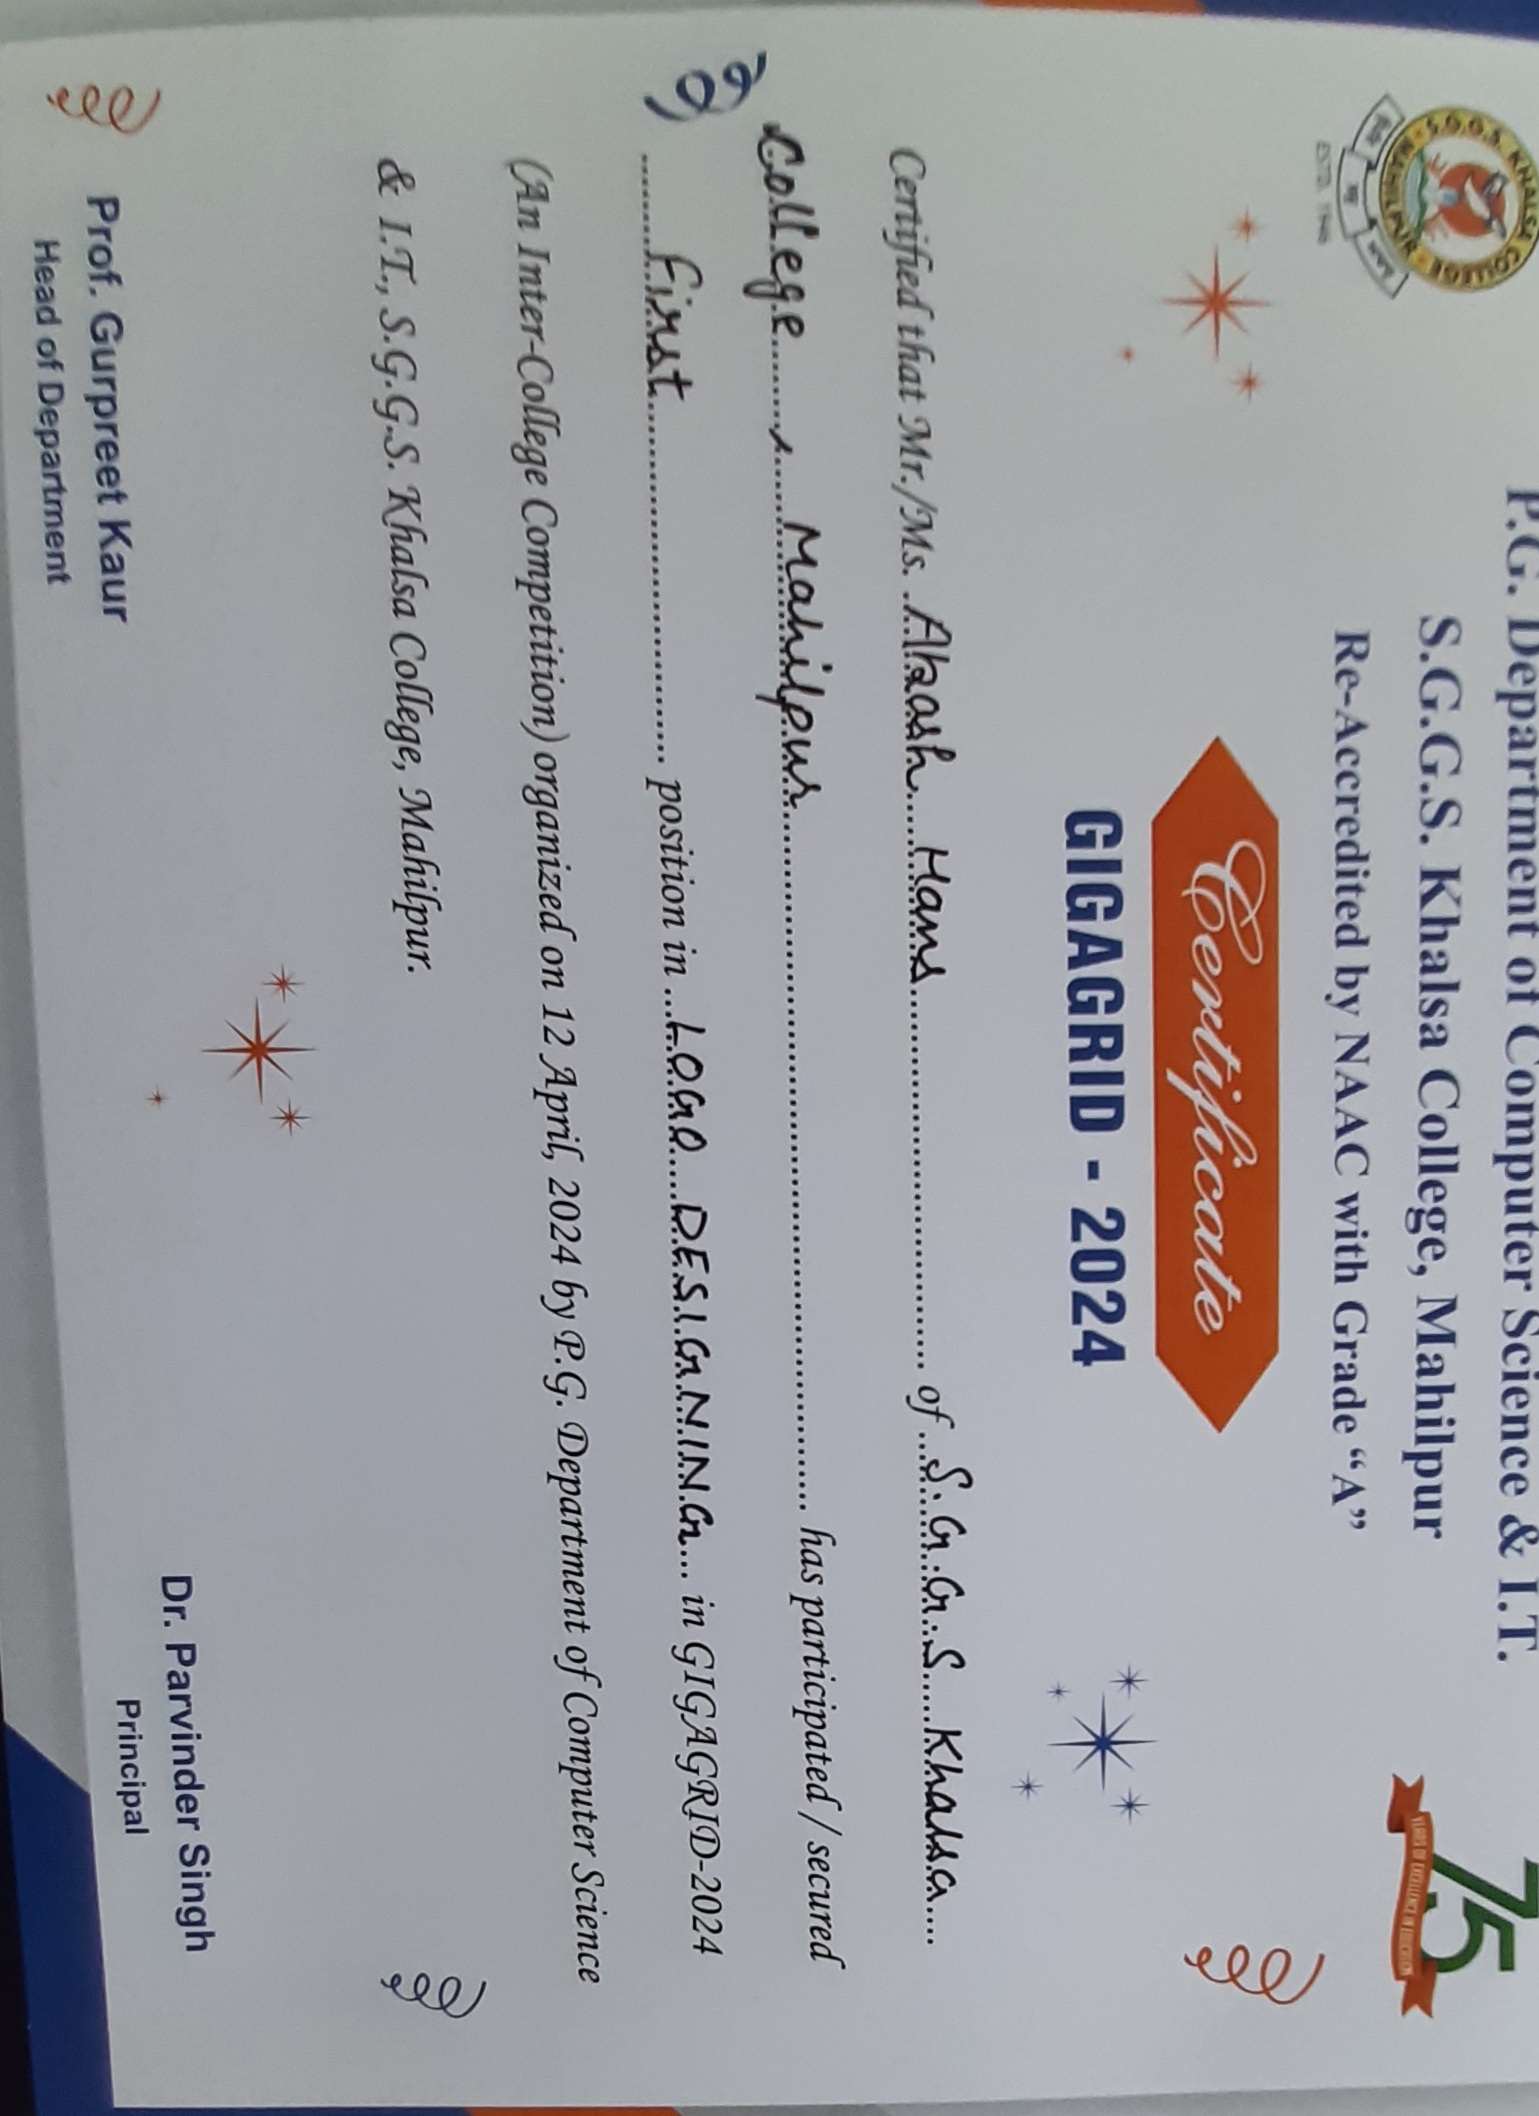 S.G.G.S. KHALSA COLLEGE
MAHILPUR
ESTD. 1946
P.G. Department of Computer Science & I.T.
S.G.G.S. Khalsa College, Mahilpur
Re-Accredited by NAAC with Grade “A”
75
YEARS OF EXCELLENCE IN EDUCATION
Certificate
GIGAGRID - 2024
Certified that Mr./Ms. Akash Hans of S.G.G.S Khalsa
College, Mahilpur has participated / secured
first position in LOGO DESIGNING in GIGAGRID-2024
(An Inter-College Competition) organized on 12 April, 2024 by P.G. Department of Computer Science
& I.T., S.G.G.S. Khalsa College, Mahilpur.
Prof. Gurpreet Kaur
Head of Department
Dr. Parvinder Singh
Principal